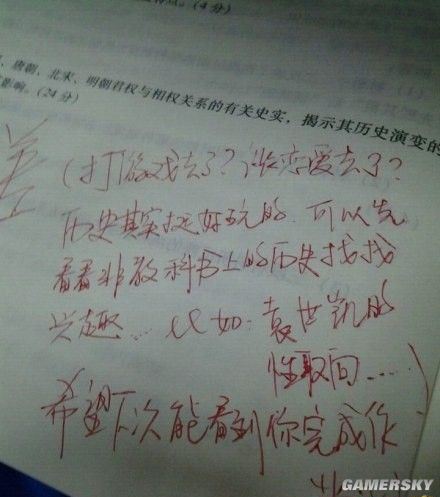 (4分)
、唐朝、北宋、明朝君权与相权关系的有关史实,揭示其历史演变的
影响。(24分)
差
(打游戏去了?谈恋爱去了?
历史其实挺好玩的,可以先
看看非教科书上的历史找找
兴趣...比如:袁世凯的
性取向......)
希望下次能看到你完成作
业
GAMERSKY